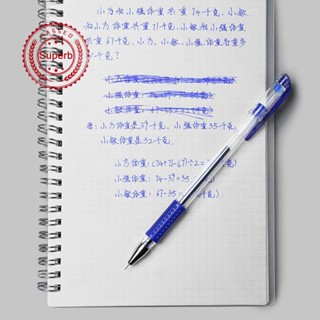 PASSED
Superb
小方和小强体重共重74千克、小敏
和小方体重共重71千克、小敏和小强体重
共重67千克、小方、小敏、小强各重多
少千克?
答:小方体重是39千克、小强体重35千克、
小敏体重是32千克。
小方体重:(74+71-67)÷2= 千克)
小强体重:74-39=35 千克)
小敏体重:67-35 千克)